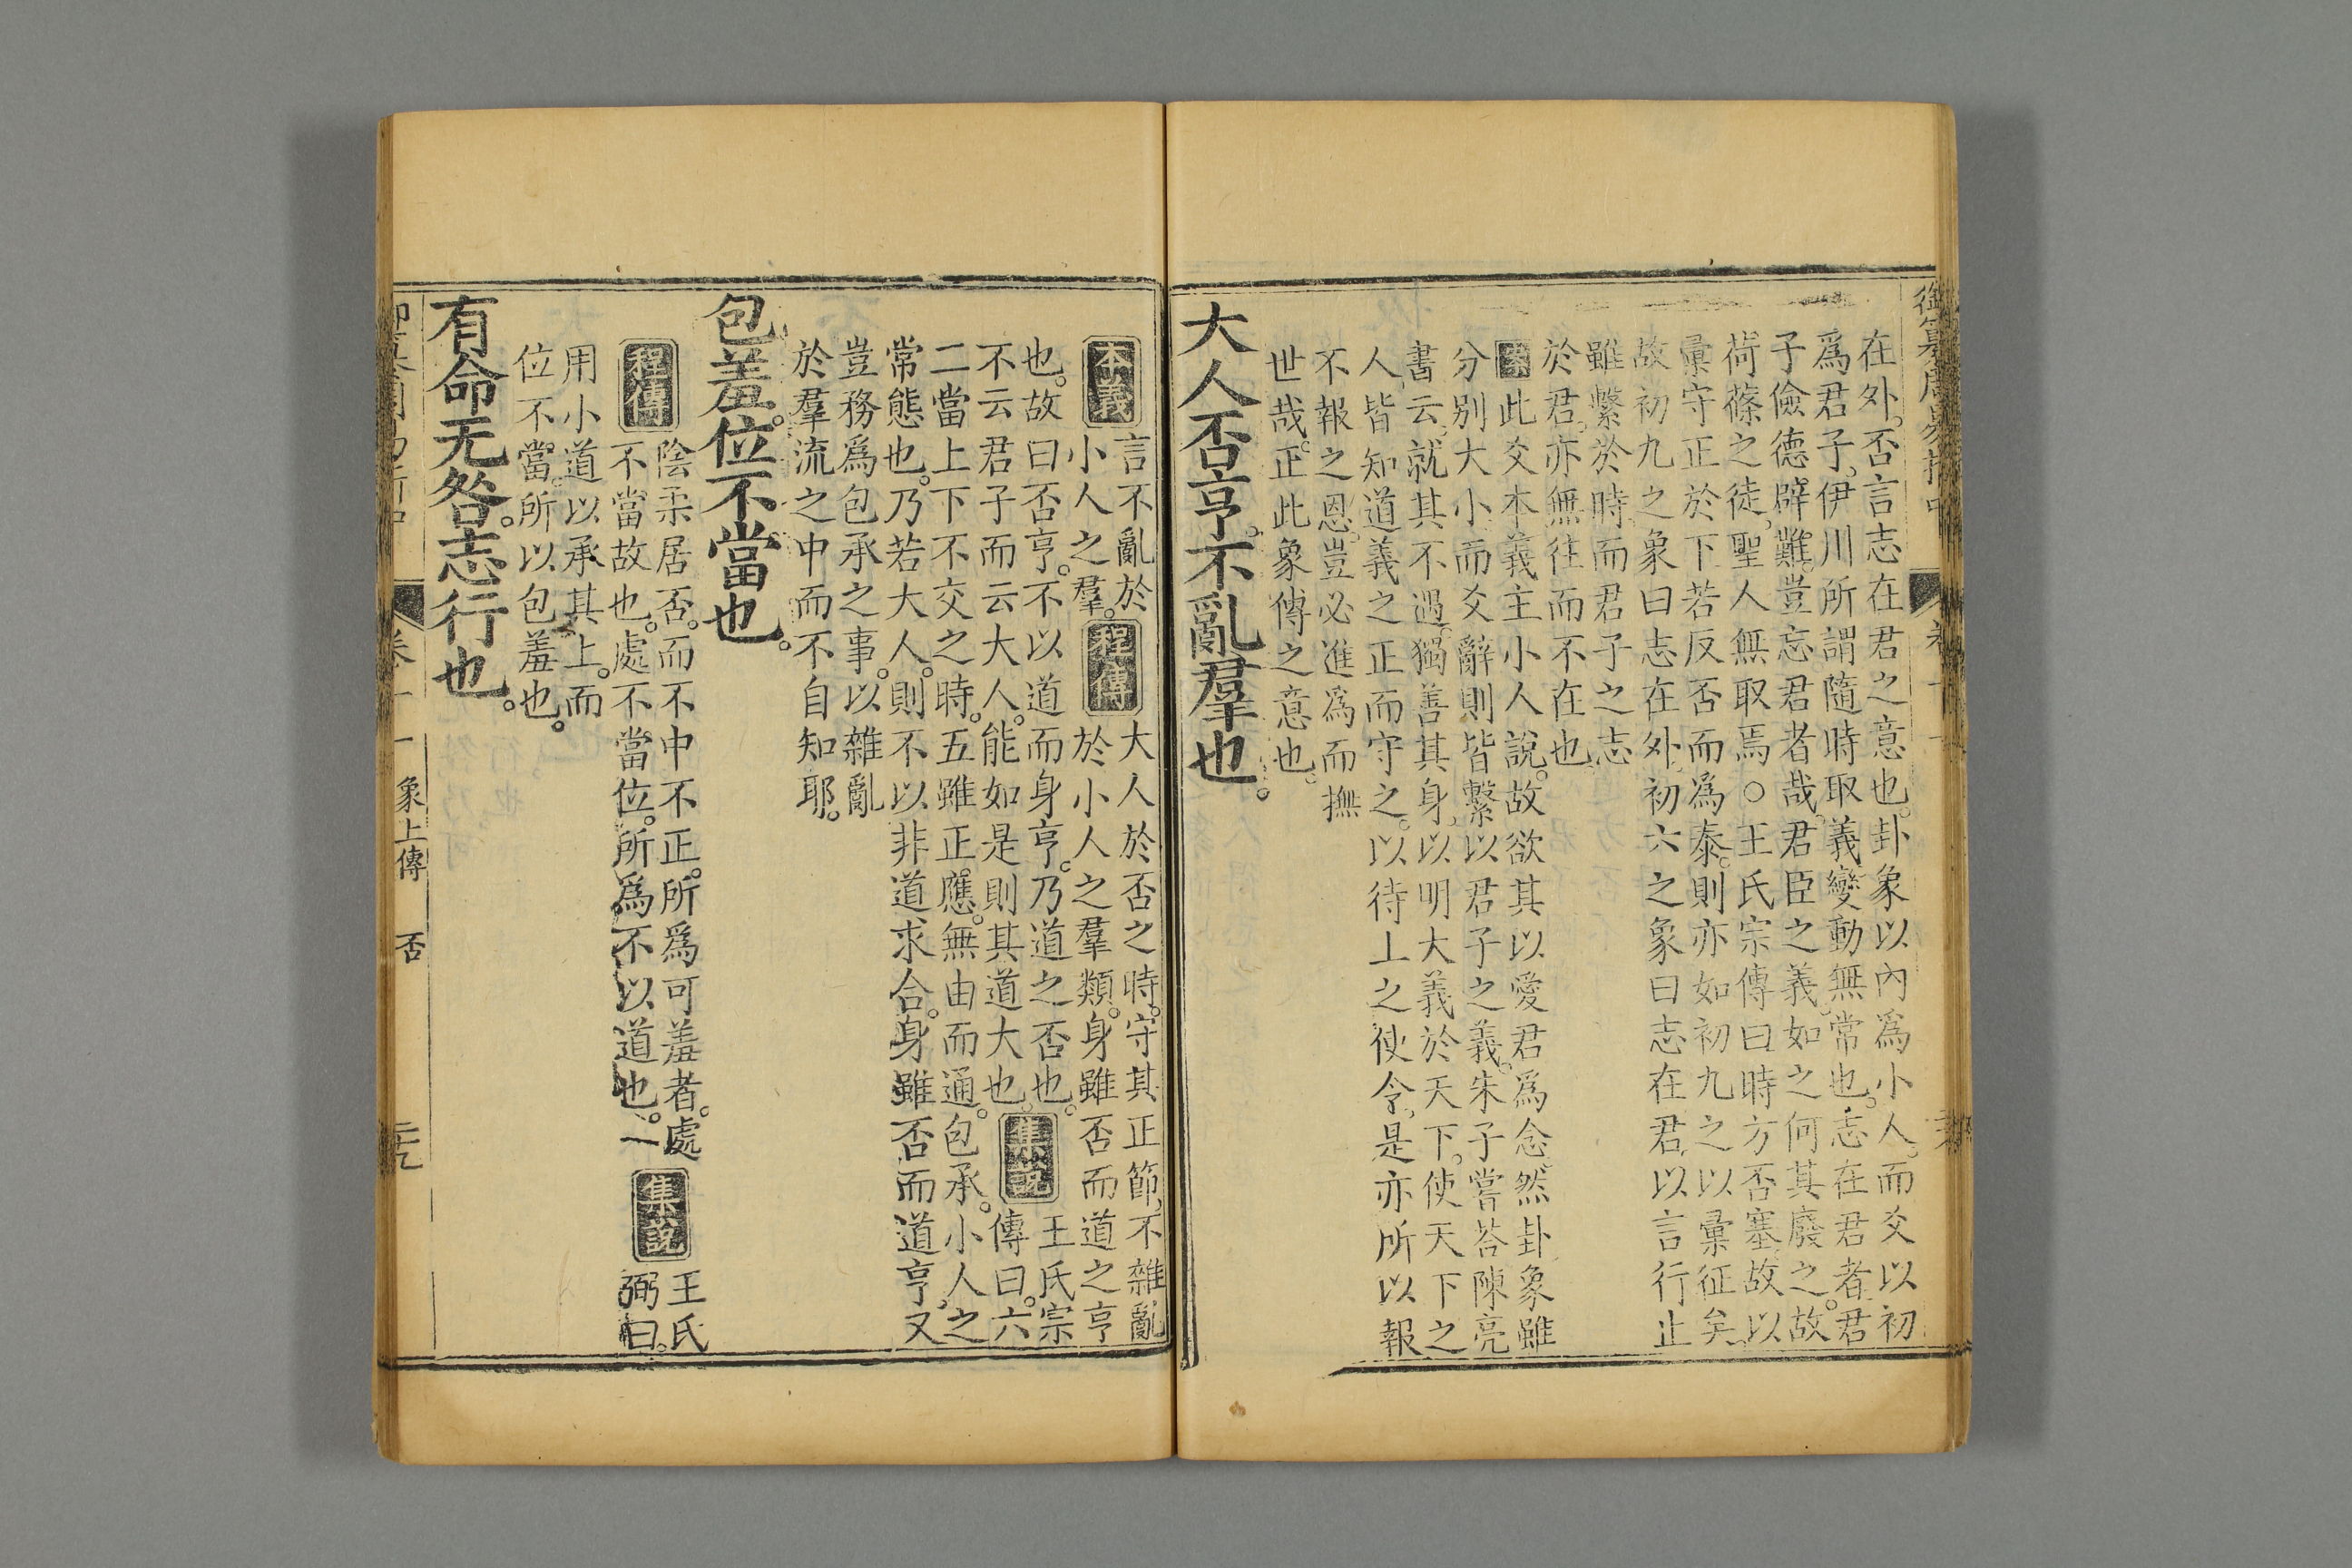 在外。否言志在君之意也。卦象以內爲小人。而爻以初
爲君子。伊川所謂隨時取義。變動無常也。志在君者。君
子儉德辟難。豈忘君者哉。君臣之義。如之何其廢之。故
荷蓧之徒。聖人無取焉。○王氏宗傳曰。時方否塞。故以
彚守正於下。若反否而爲泰。則亦如初九之以彚征矣。
故初九之象曰志在外。初六之象曰志在君。以言行止
雖繫於時。而君子之志
於君。亦無往而不在也
案此爻本義主小人說。故欲其以愛君爲念。然卦象雖
分別大小。而爻辭則皆繫以君子之義。朱子嘗荅陳亮
書云。就其不遇。獨善其身。以明大義於天下。使天下之
人。皆知道義之正而守之。以待上之使令。是亦所以報
不報之恩。豈必進爲而撫
世哉。正此象傳之意也。
大人否亨。不亂羣也。
本義
言不亂於
小人之羣。
程傳
大人於否之時。守其正節。不雜亂
於小人之羣類。身雖否而道之亨
也。故曰否亨。不以道而身亨。乃道之否也。
不云君子而云大人。能如是則其道大也。
集說
王氏宗
傳曰。六
二當上下不交之時。五雖正應。無由而通。包承。小人之
常態也。乃若大人。則不以非道求合。身雖否而道亨。又
豈務爲包承之事。以雜亂
於羣流之中而不自知耶。
包羞。位不當也。
程傳
陰柔居否。而不中不正。所爲可羞者。處
不當故也。處不當位。所爲不以道也。
集說
王氏
弼曰。
用小道以承其上。而
位不當。所以包羞也。
有命无咎。志行也。
象上傳
否